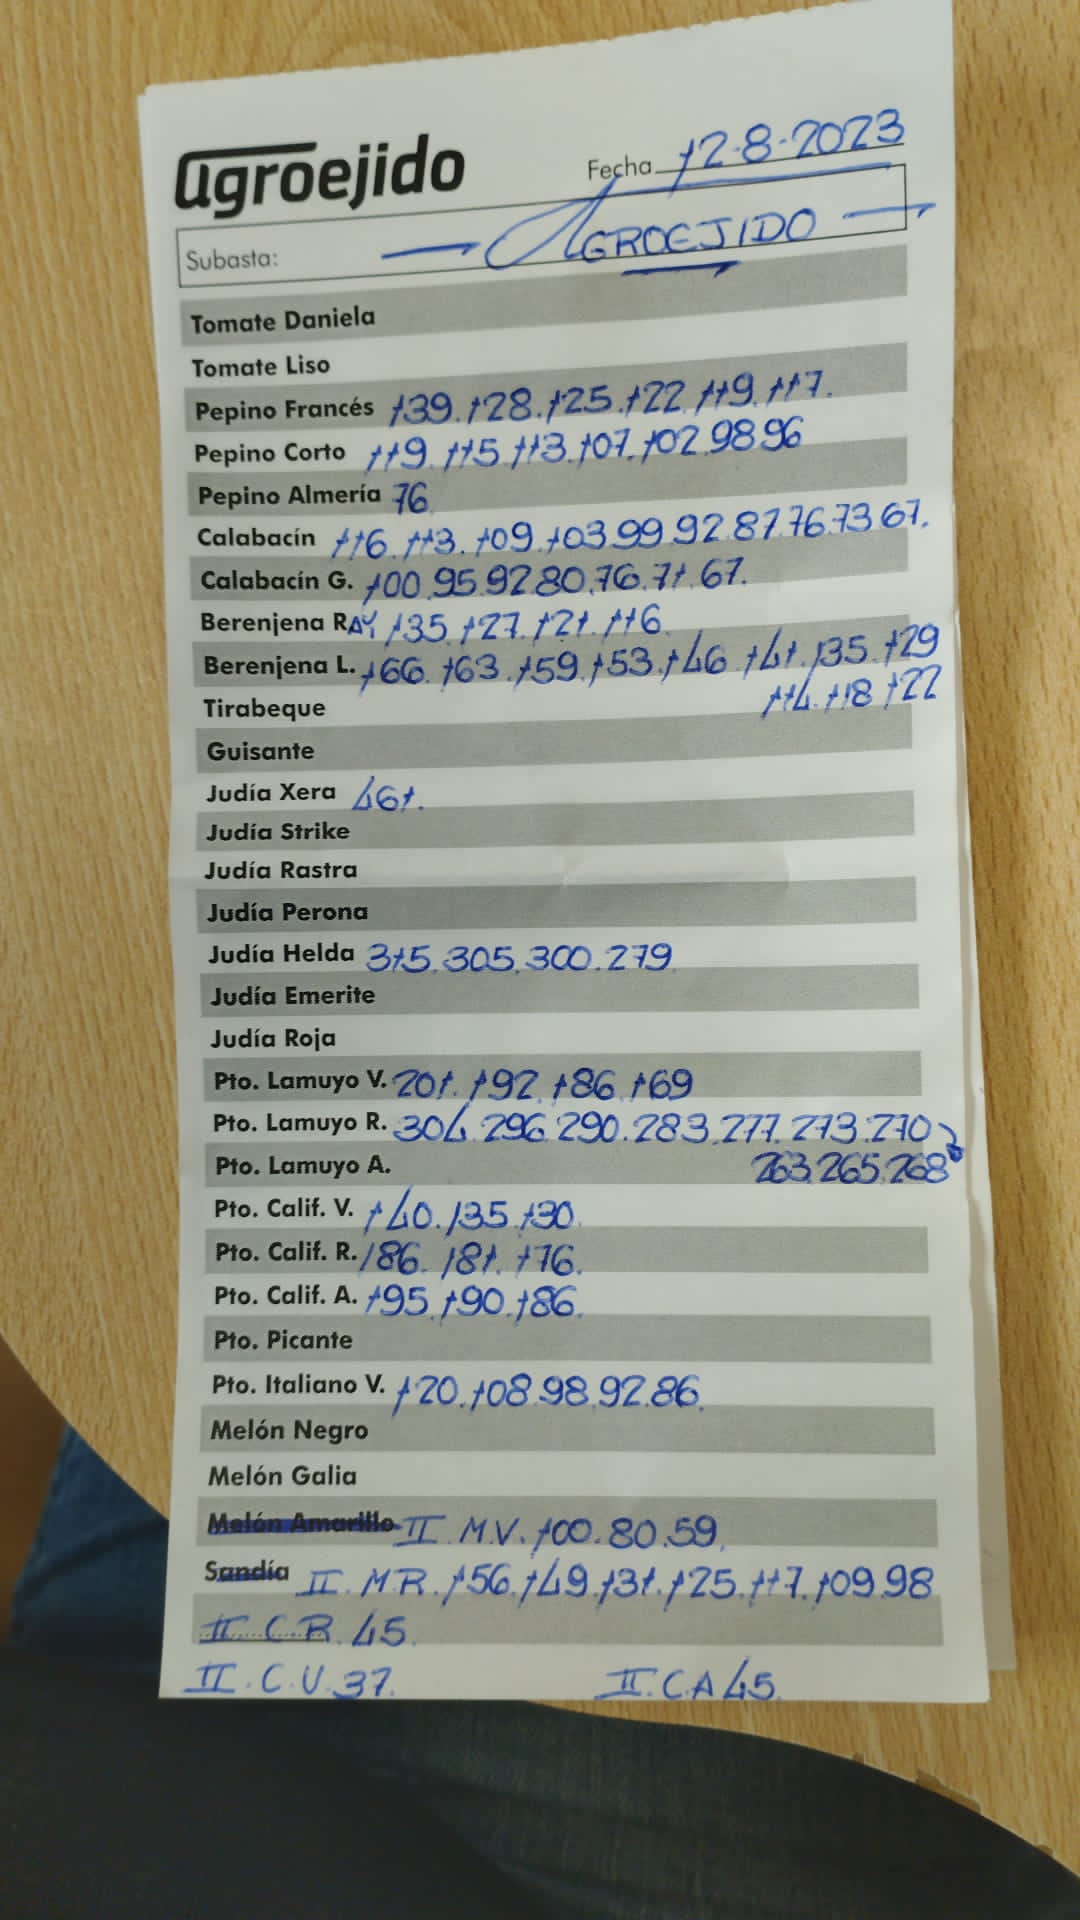 agroejido
Fecha 12-8-2023
Subasta: AGROEJIDO
Tomate Daniela
Tomate Liso
Pepino Francés 139.128.125.122.119.117.
Pepino Corto 119.115.113.107.102.98.96
Pepino Almería 76.
Calabacín 116.113.109.103.99.92.87.76.73.67.
Calabacín G. 100.95.92.80.76.71.67.
Berenjena RAY 135.127.121.116.
Berenjena L. 166.163.159.153.146 141.135.129
Tirabeque 114.118 122
Guisante
Judía Xera 461.
Judía Strike
Judía Rastra
Judía Perona
Judía Helda 315.305.300.279
Judía Emerite
Judía Roja
Pto. Lamuyo V. 201.192.186.169
Pto. Lamuyo R. 304.296.290.283.277.273.270
Pto. Lamuyo A. 263.265.268
Pto. Calif. V. 140.135.130.
Pto. Calif. R. 186.181.176.
Pto. Calif. A. 195.190.186.
Pto. Picante
Pto. Italiano V. 120.108.98.92.86.
Melón Negro
Melón Galia
Melón Amarillo II. M.V. 100.80.59.
Sandía II. M.R. 156.149.131.125.117.109.98
II. C.R. 45.
II. C.V. 37. II. C.A 45.